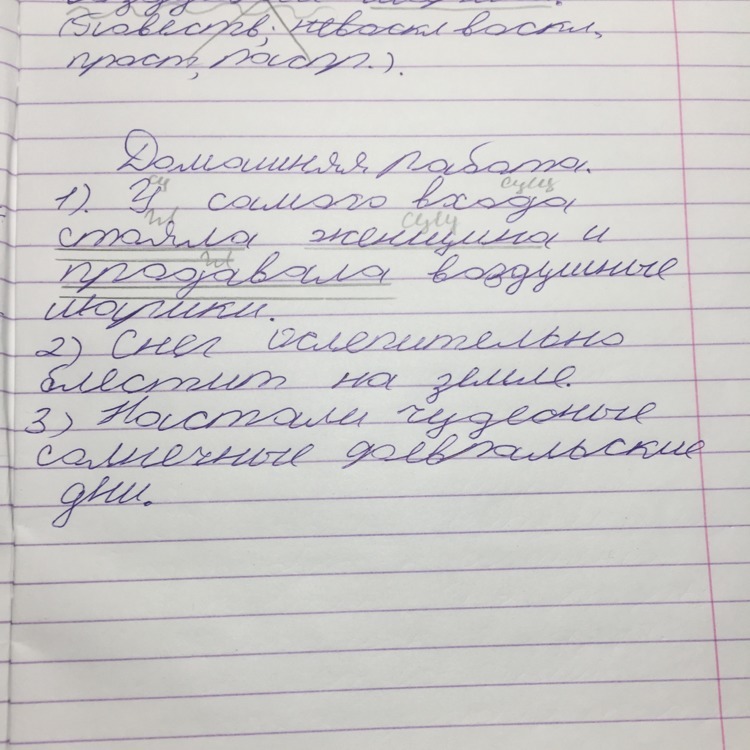 (Повеств; невоскл воскл,
прост, распр.).
Домашняя работа.
1). У самого входа
сущ
гл сущ
стояла женщина и
гл
продавала воздушные
шарики.
2) Снег ослепительно
блестит на земле.
3) Настали чудесные
солнечные февральские
дни.